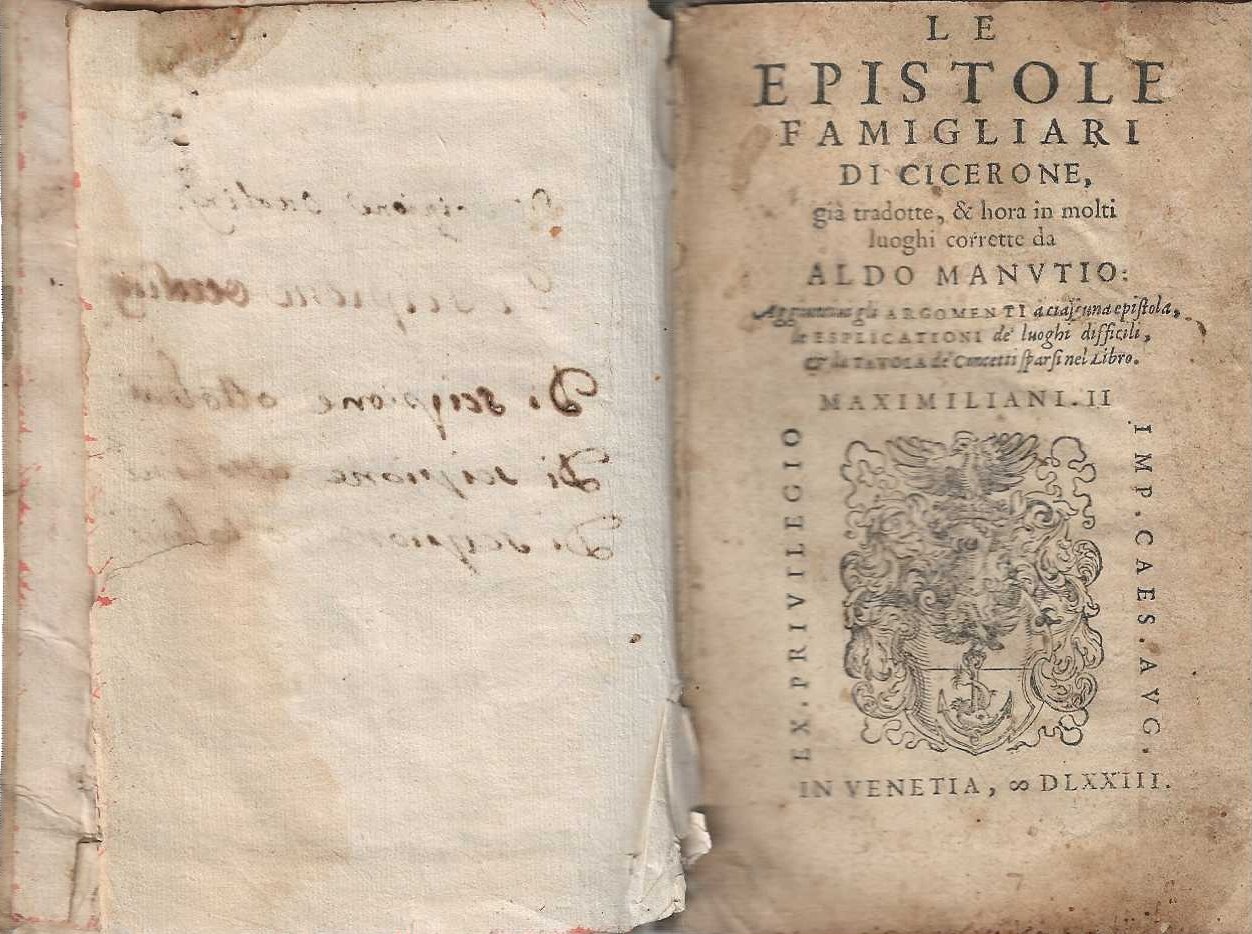 Di scipione
Di scipione
Di scipione
Di
LE
EPISTOLE
FAMIGLIARI
DI CICERONE,
già tradotte, & hora in molti
luoghi corrette da
ALDO MANVTIO:
gli ARGOMENTI a ciaſcuna epiſtola,
le ESPLICATIONI de' luoghi difficili,
& la TAVOLA de' Concetti ſparſi nel Libro.
MAXIMILIANI. II
EX. PRIVILEGIO
IMP. CAES. AVG.
IN VENETIA, ∞ DLXXIII.